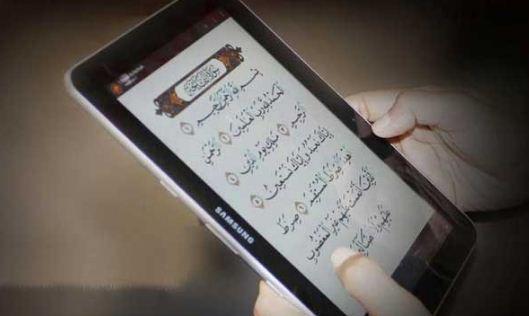 سورة الفاتحة
بسم الله الرحمن الرحيم ۝
الحمد لله رب العلمين ۝ الرحمن
الرحيم ۝ ملك يوم الدين ۝
إياك نعبد وإياك نستعين ۝
اهدنا الصرط المستقيم ۝ صرط
الذين أنعمت عليهم غير المغضوب
عليهم ولا الضالين
SAMSUNG